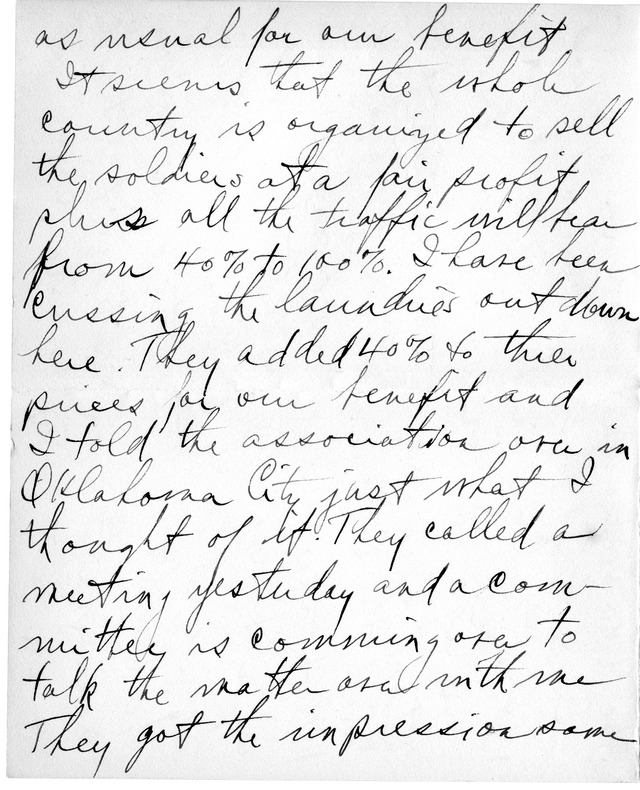 as usual for our benefit
It seems that the whole
country is organized to sell
the soldiers at a fair profit
plus all the traffic will bear
from 40% to 100%. I have been
cussing the laundries out down
here. They added 40% to their
prices for our benefit and
I told the association over in
Oklahoma City just what I
thought of it. They called a
meeting yesterday and a com-
mittee is comming over to
talk the matter over with me
They got the impression some